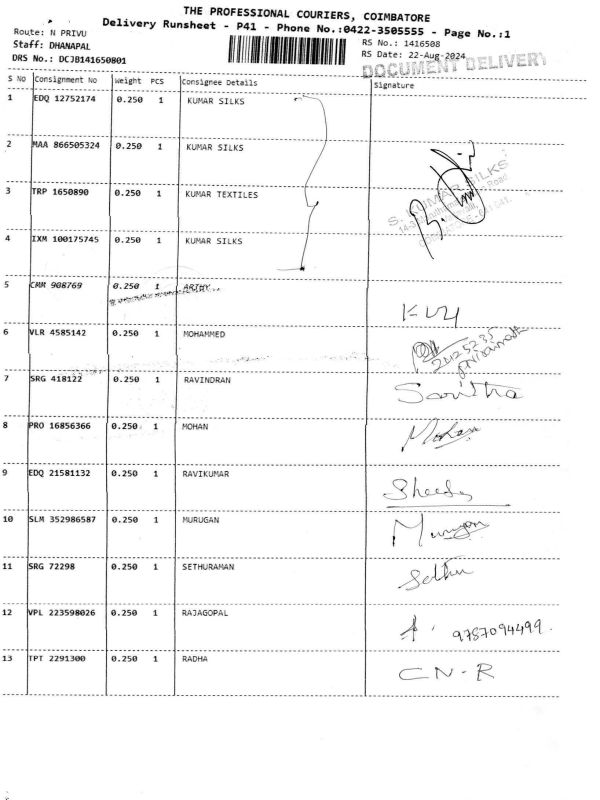 THE PROFESSIONAL COURIERS, COIMBATORE
Delivery Runsheet - P41 - Phone No.:0422-3505555 - Page No.:1
Route: N PRIVU
Staff: DHANAPAL
DRS No.: DCJB141650801
RS No.: 1416508
RS Date: 22-Aug-2024
DOCUMENT DELIVERY
S No Consignment No Weight PCS Consignee Details Signature
1 EDQ 12752174 0.250 1 KUMAR SILKS
2 MAA 866505324 0.250 1 KUMAR SILKS
S. KUMAR SILKS
3 TRP 1650890 0.250 1 KUMAR TEXTILES
4 IXM 100175745 0.250 1 KUMAR SILKS
5 CMR 908769 0.250 1 ARTHY
6 VLR 4585142 0.250 1 MOHAMMED
7 SRG 418122 0.250 1 RAVINDRAN Saritha
8 PRO 16856366 0.250 1 MOHAN Mohan
9 EDQ 21581132 0.250 1 RAVIKUMAR
10 SLM 352986587 0.250 1 MURUGAN Murugan
11 SRG 72298 0.250 1 SETHURAMAN Sethu
12 VPL 223598026 0.250 1 RAJAGOPAL 9787094499.
13 TPT 2291300 0.250 1 RADHA CN-R